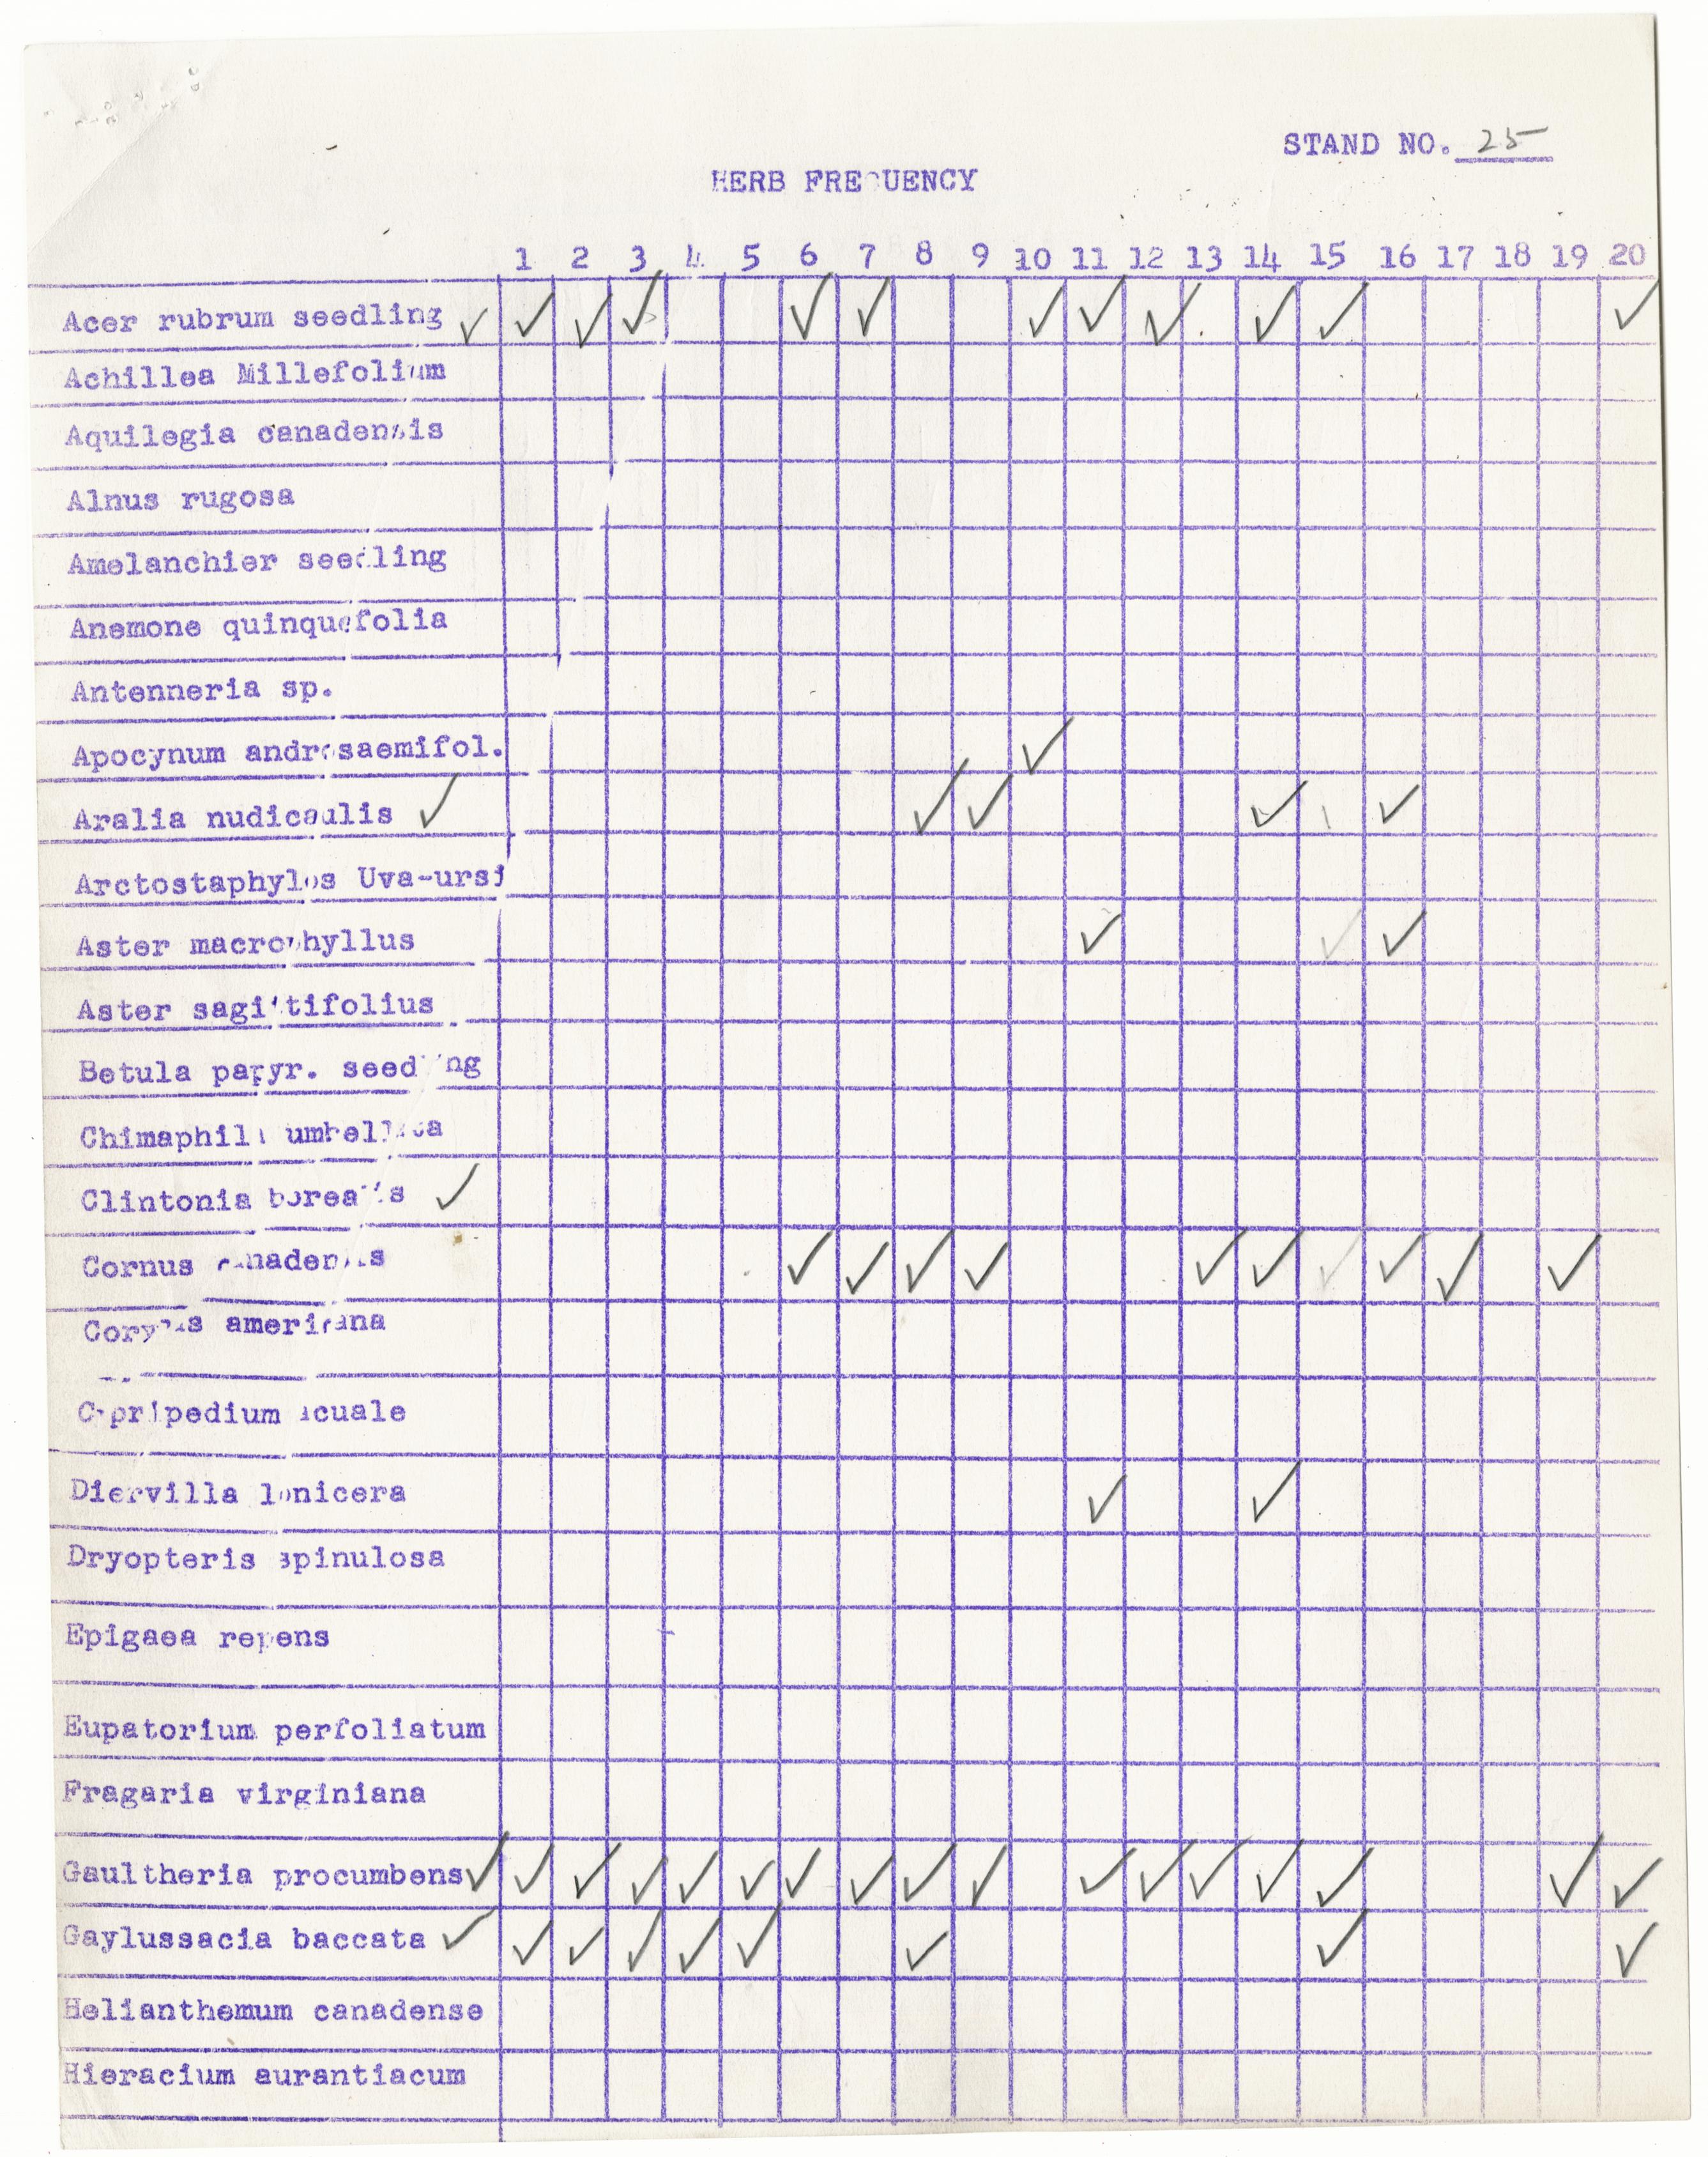 STAND NO. 25
HERB FREQUENCY
1 2 3 4 5 6 7 8 9 10 11 12 13 14 15 16 17 18 19 20
Acer rubrum seedling ✓ ✓ ✓ ✓ ✓ ✓ ✓ ✓ ✓ ✓ ✓ ✓
Achillea Millefolium
Aquilegia canadensis
Alnus rugosa
Amelanchier seedling
Anemone quinquefolia
Antenneria sp.
Apocynum androsaemifol. ✓
Aralia nudicaulis ✓ ✓ ✓ ✓ ✓
Arctostaphylos Uva-ursi
Aster macrophyllus ✓ ✓ ✓
Aster sagittifolius
Betula papyr. seedling
Chimaphila umbellata
Clintonia borealis ✓
Cornus canadensis ✓ ✓ ✓ ✓ ✓ ✓ ✓ ✓ ✓ ✓
Corylus americana
Cypripedium acuale
Diervilla lonicera ✓ ✓
Dryopteris spinulosa
Epigaea repens
Eupatorium perfoliatum
Fragaria virginiana
Gaultheria procumbens ✓ ✓ ✓ ✓ ✓ ✓ ✓ ✓ ✓ ✓ ✓ ✓ ✓ ✓ ✓ ✓ ✓
Gaylussacia baccata ✓ ✓ ✓ ✓ ✓ ✓ ✓ ✓ ✓
Helianthemum canadense
Hieracium aurantiacum